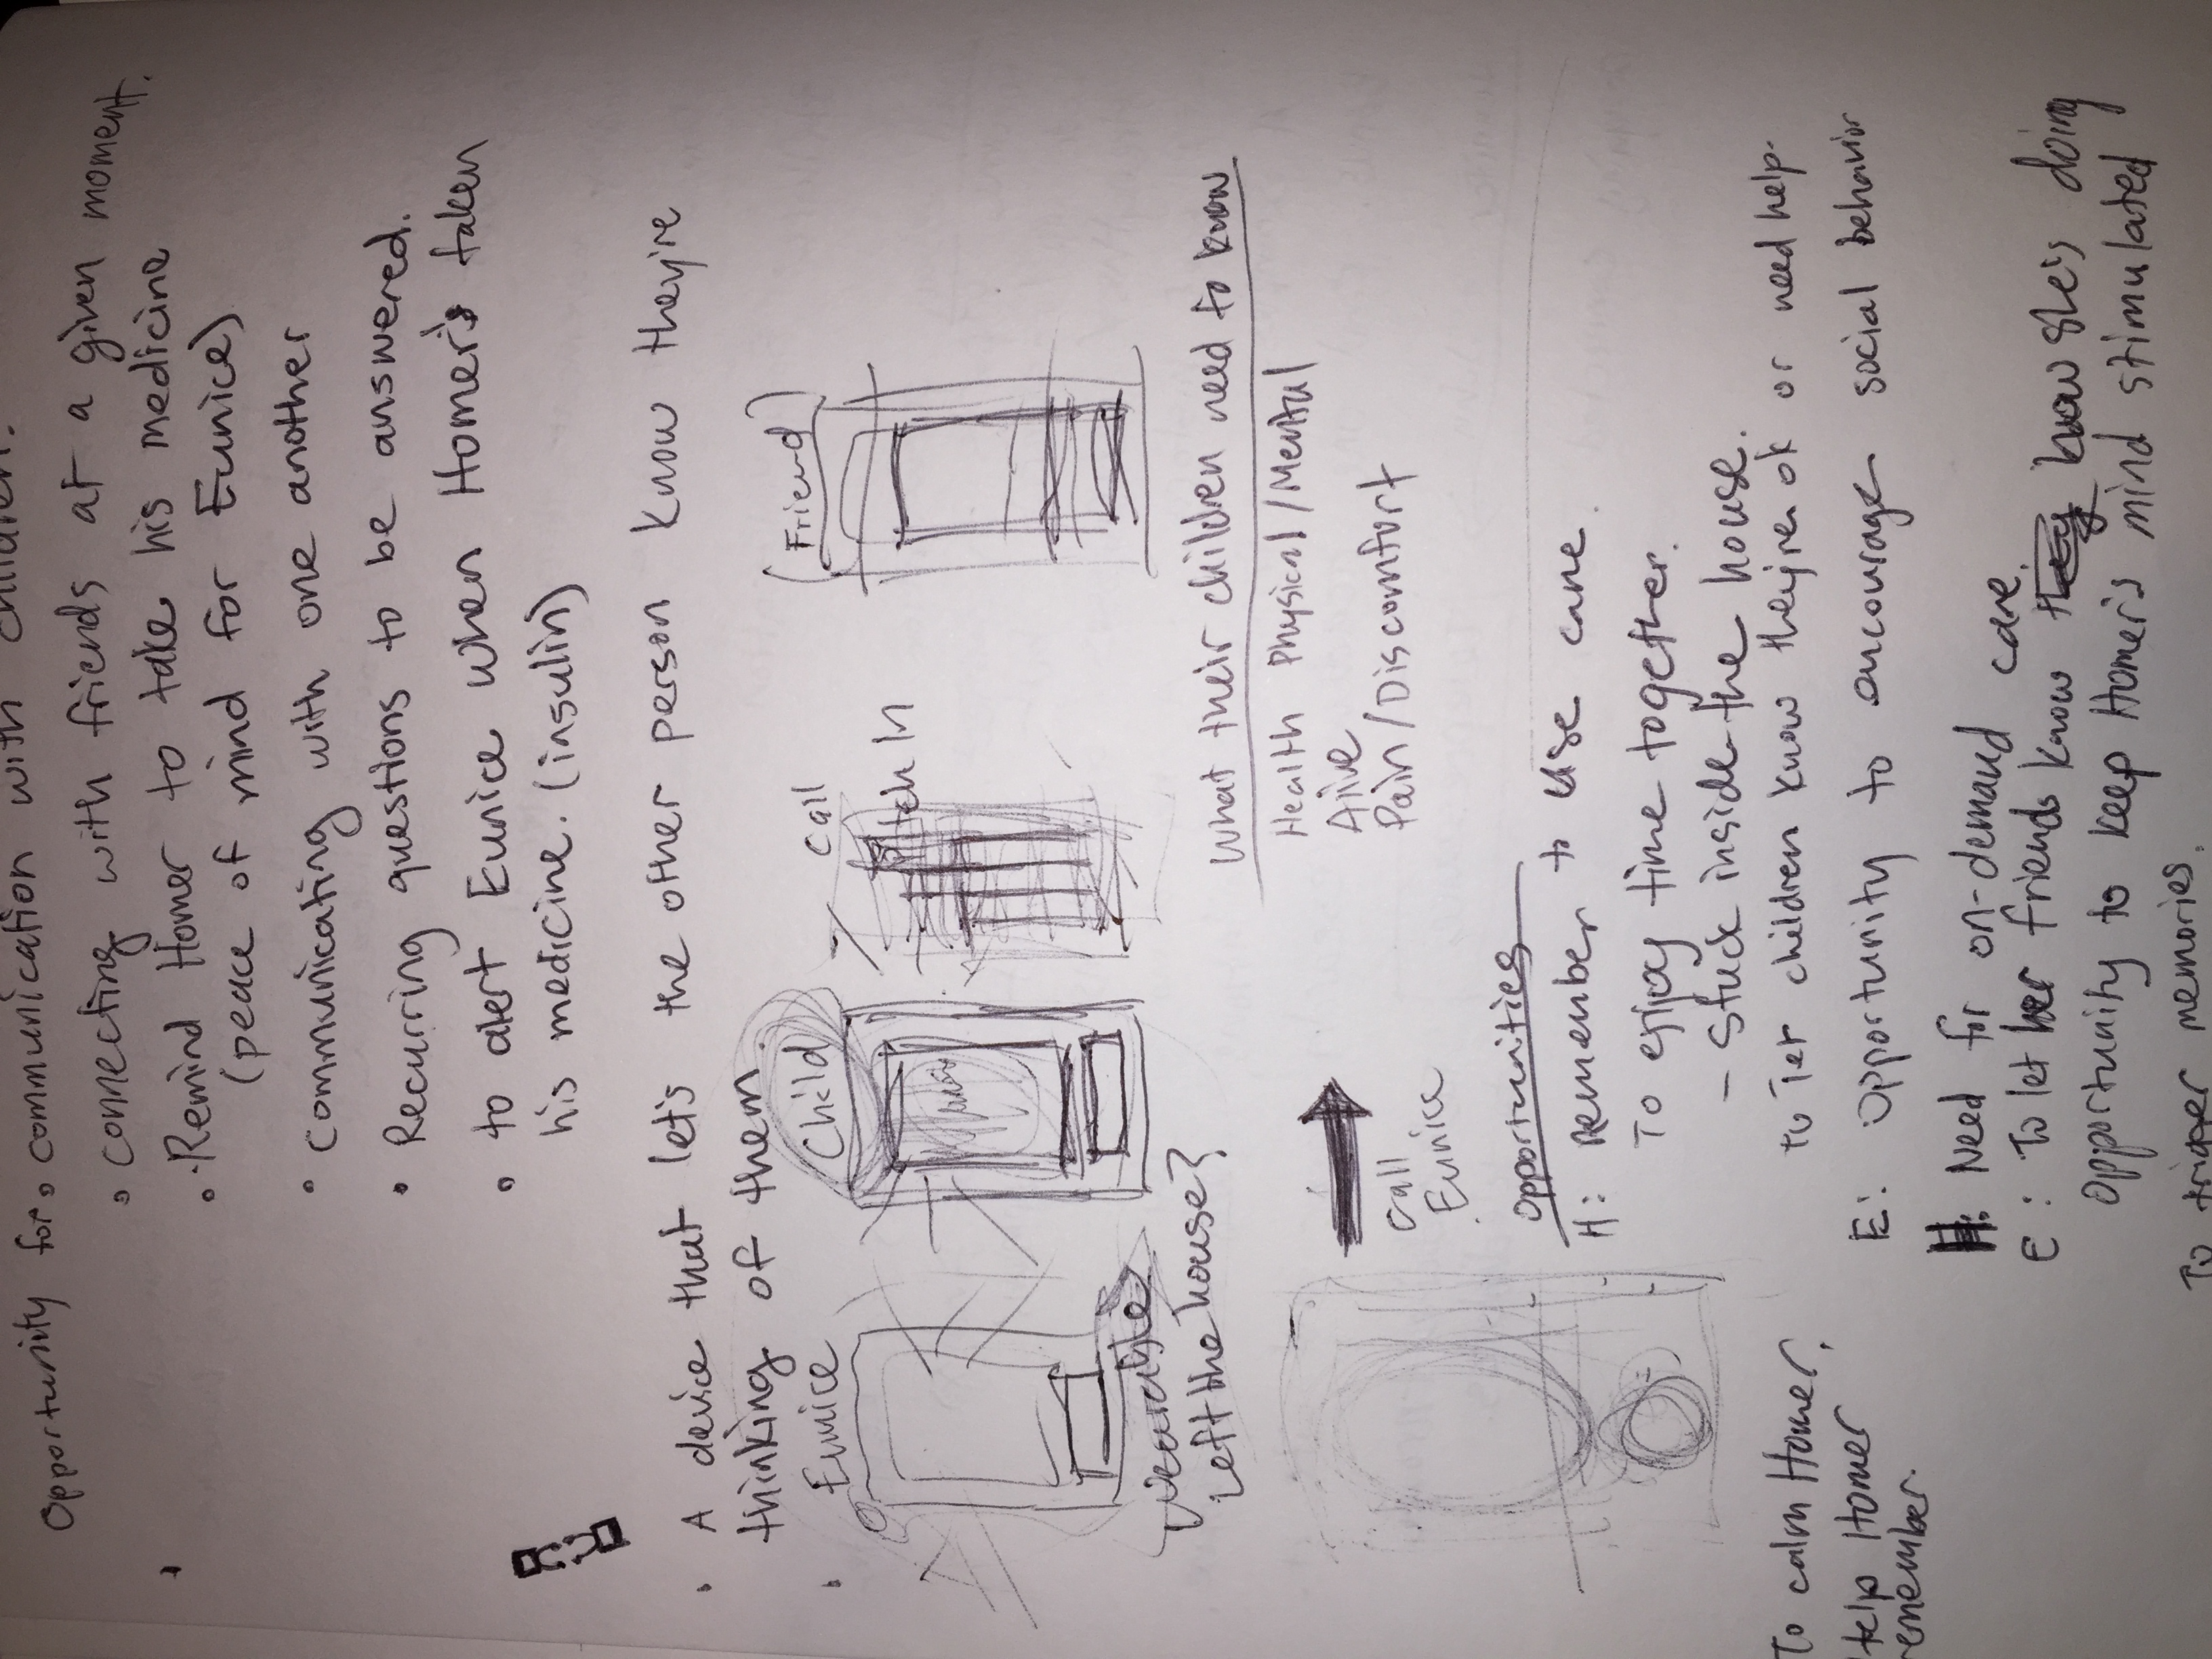 Opportunity for • communication with children.
• connecting with friends at a given moment.
• Remind Homer to take his medicine
(peace of mind for Eunice)
• communicating with one another
• Recurring questions to be answered.
• to alert Eunice when Homer's taken
his medicine. (insulin)
• A device that let's the other person know they're
thinking of them.
Eunice
Child
Call
Pitch In
(Friend)
Wearable
Left the house?
What their children need to know
Health Physical/Mental
Alive
Pain/Discomfort
Call
Eunice
Opportunities
H: Remember to use cane.
To enjoy time together.
- Stuck inside the house.
to let children know they're ok or need help.
To calm Homer,
Help Homer
remember.
E: Opportunity to encourage social behavior
H: Need for on-demand care.
E: To let her friends know they know she's doing
Opportunity to keep Homer's mind stimulated
To trigger memories.